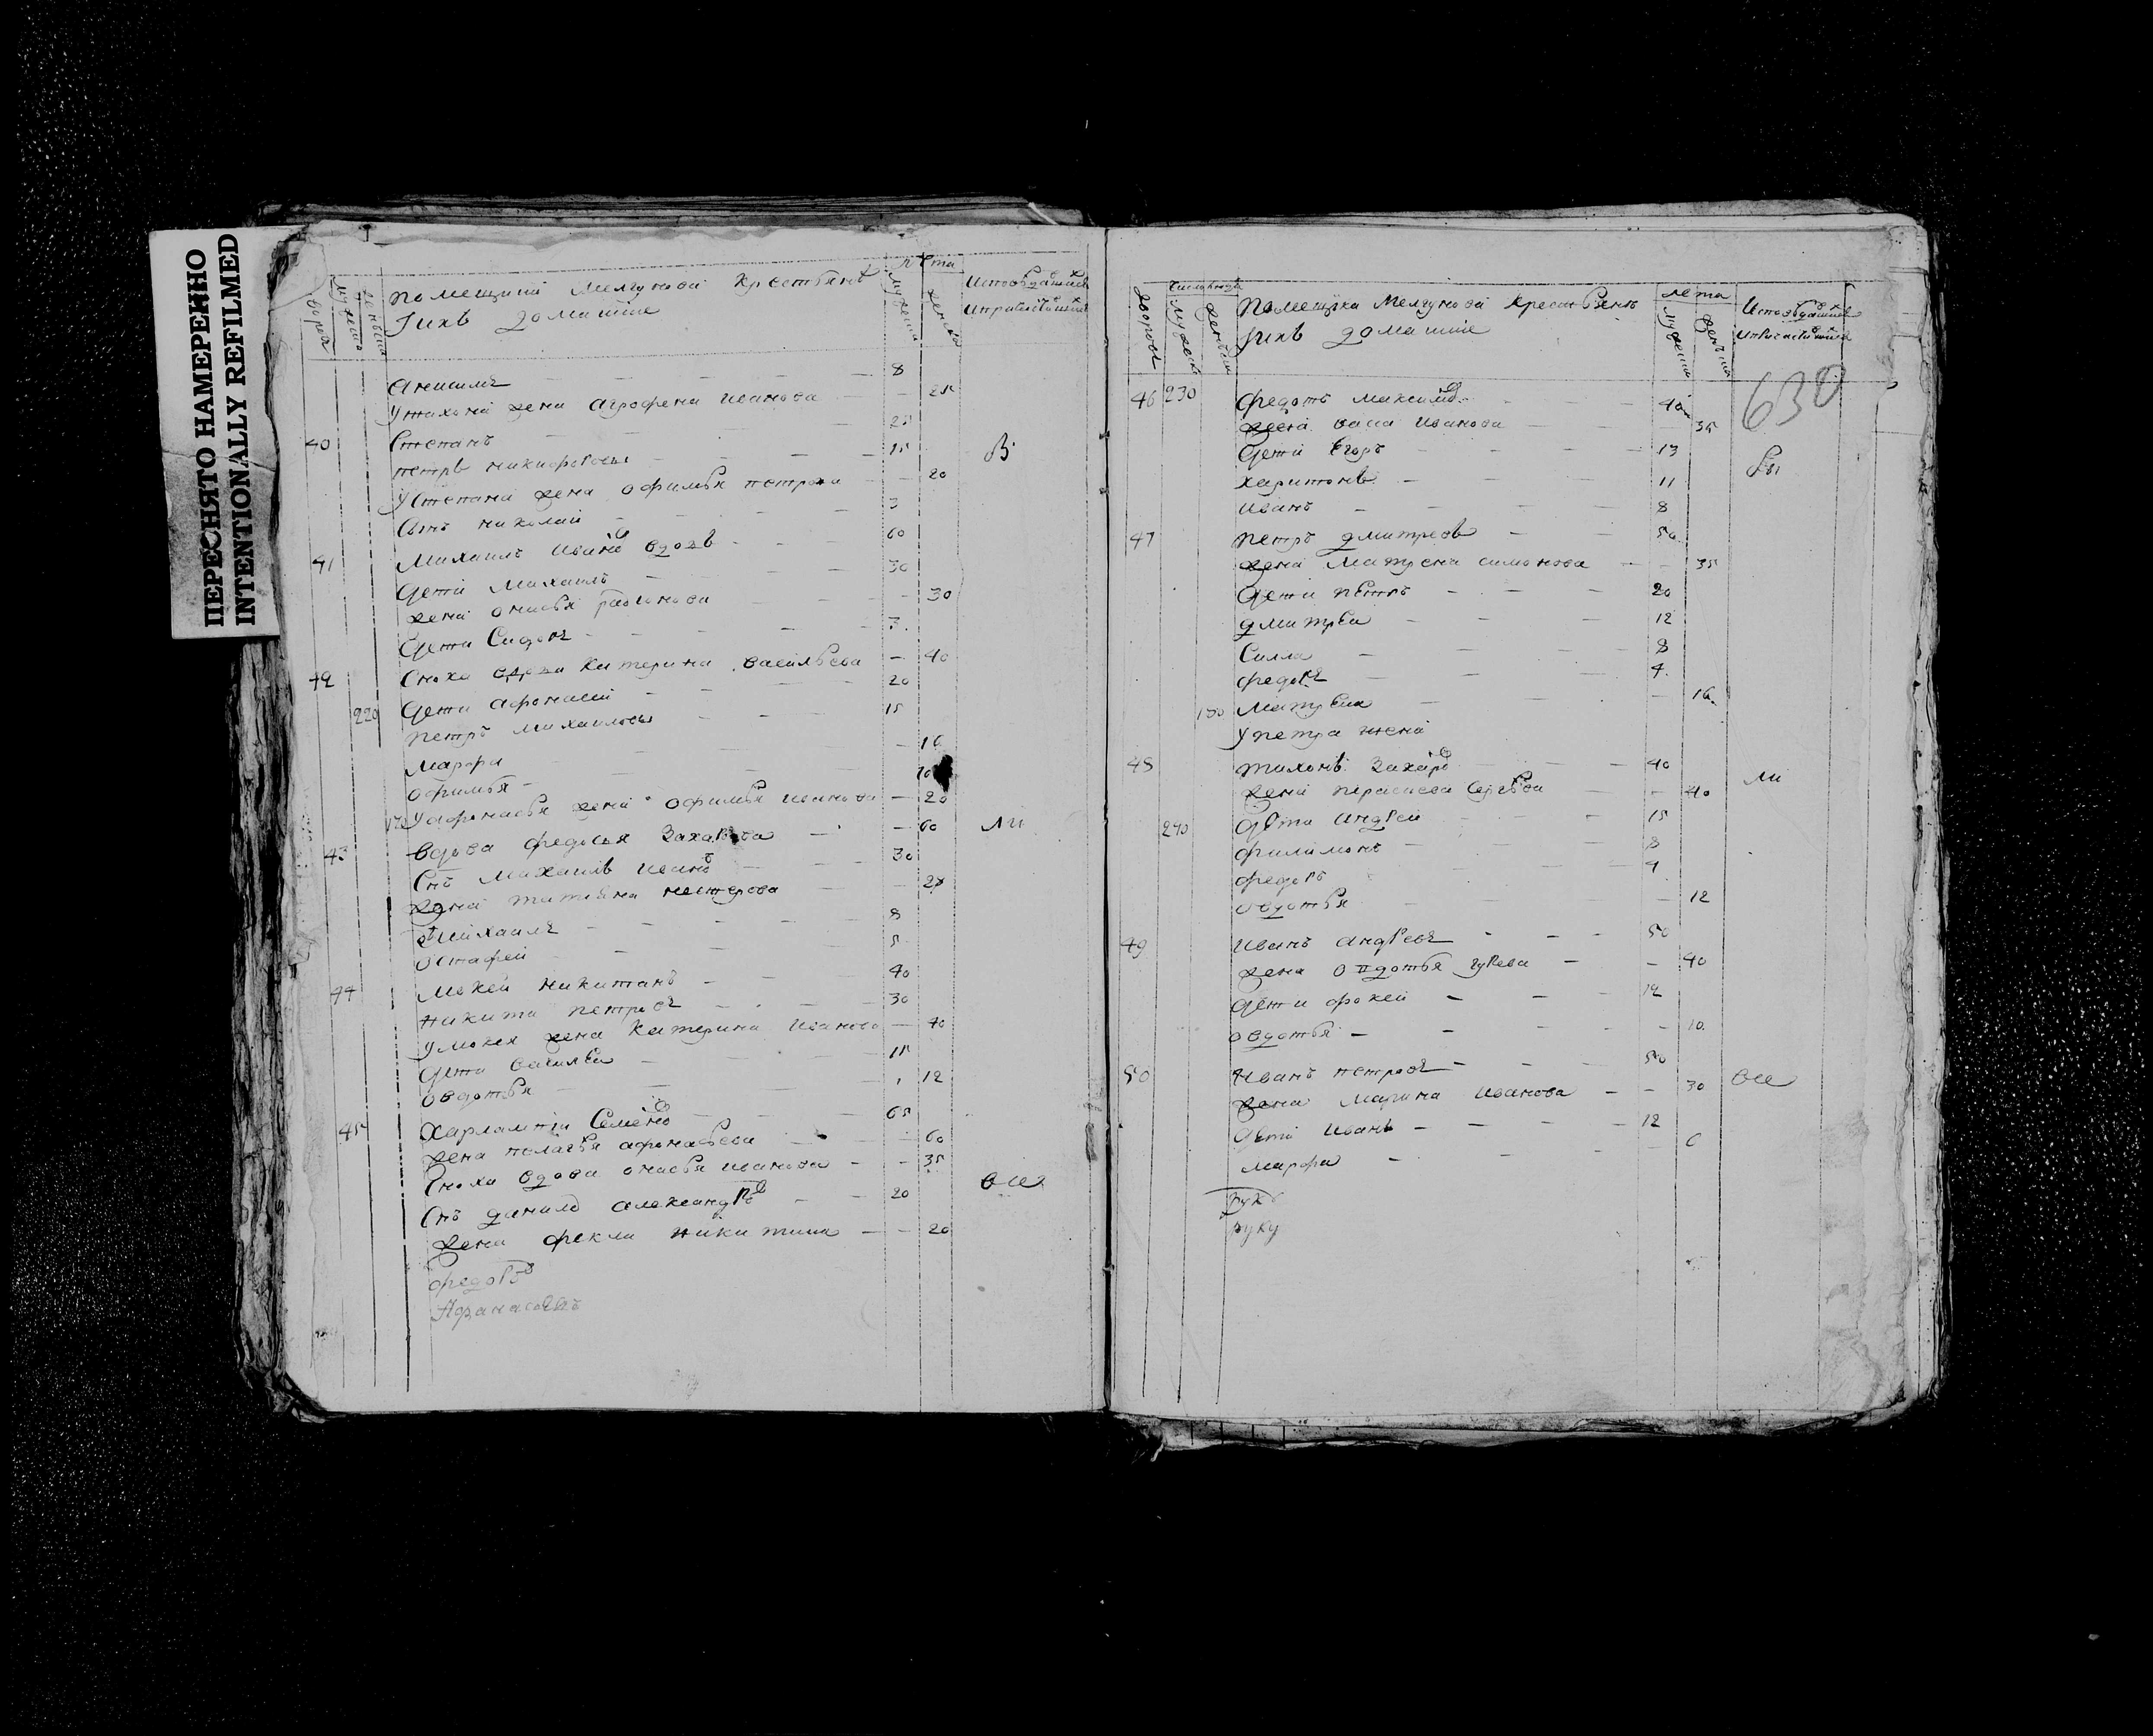 ПЕРЕСНЯТО НАМЕРЕННО
INTENTIONALLY REFILMED
двороы
мужеска
женьска
помещици мелгунова крестьянъ
ихъ домашние
лета
мужеска
женьска
Исповедашихся
и причастившихся
Анисимъ — 8
У тихона жена Агрофена Иванова — 25
40 Степанъ — 25
петръ никифоровы — 15 В
У степана жена офимья петрова — 20
Сынъ николаи — 3
41 Михаилъ Иванов вдовъ — 60
Дети михаилъ — 30
жена онисья — 30
Дети Сидоръ — 3
42 Сноха вдова Катерина васильева — 40
Дети афонасеи — 20
220 петръ михаиловы — 15
марфа — 16
офимья — 10
170 У афонасья жена офимья иванова — 20
43 вдова федосья Захарова — 60 ли
Снъ михаилъ иванов — 30
жена татияна нестерова — 28
михаилъ — 8
остафеи — 5
44 мокеи никитинъ — 40
никита петровъ — 30
У мокея жена Катерина Иванова — 40
Дети василеи — 15
овдотья — 12
45 Харлампии Семенов — 65
жена пелагья афонасьева — 60
Сноха вдова онисья иванова — 35
Снъ данило александров — 20 все
жена фекла никитина — 20
федоров
Афанасьевъ
двороы
число людей
мужеска
женьска
Помещика Мелгунова крестьянъ
ихъ домашние
лета
мужеска
женьска
Исповедашихся
и причастившихся
630
46 230 федотъ максимов — 40
жена васа Иванова — 35
Дети Егоръ — 13 бы
харитонъ — 11
иванъ — 8
47 петръ дмитреев — 50
жена Матрена симонова — 35
Дети петръ — 20
дмитреи — 12
Силла — 8
федоръ — 4
180 Матрена — 16
У петра жена
48 тихонъ Захаров — 40 ли
жена парасковя сергева — 40
240 Дети Андреи — 15
филимонъ — 8
федоръ — 4
овдотья — 12
49 иванъ андреевъ — 50
жена овдотья гурева — 40
Дети фокеи — 12
овдотья — 10
50 Иванъ петровъ — 50
жена марина иванова — 30 все
Дети Иванъ — 12
марфа — 6
рукъ
руку